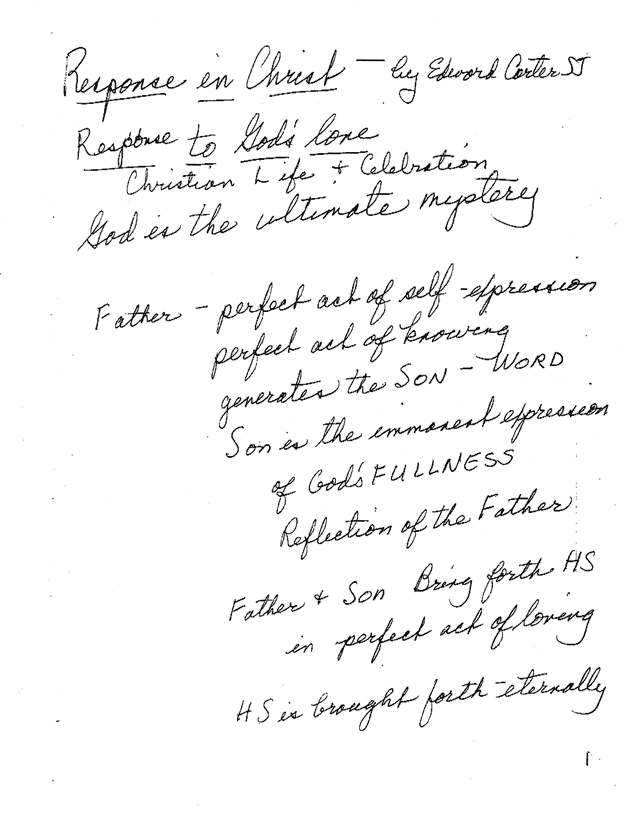 Response in Christ — by Edward Carter SJ
Response to God's love
Christian Life + Celebration
God is the ultimate mystery
Father - perfect act of self-expression
perfect act of knowing
generates the SON - WORD
Son is the immanent expression
of God's FULLNESS
Reflection of the Father
Father + Son Bring forth HS
in perfect act of loving
HS is brought forth - eternally
1